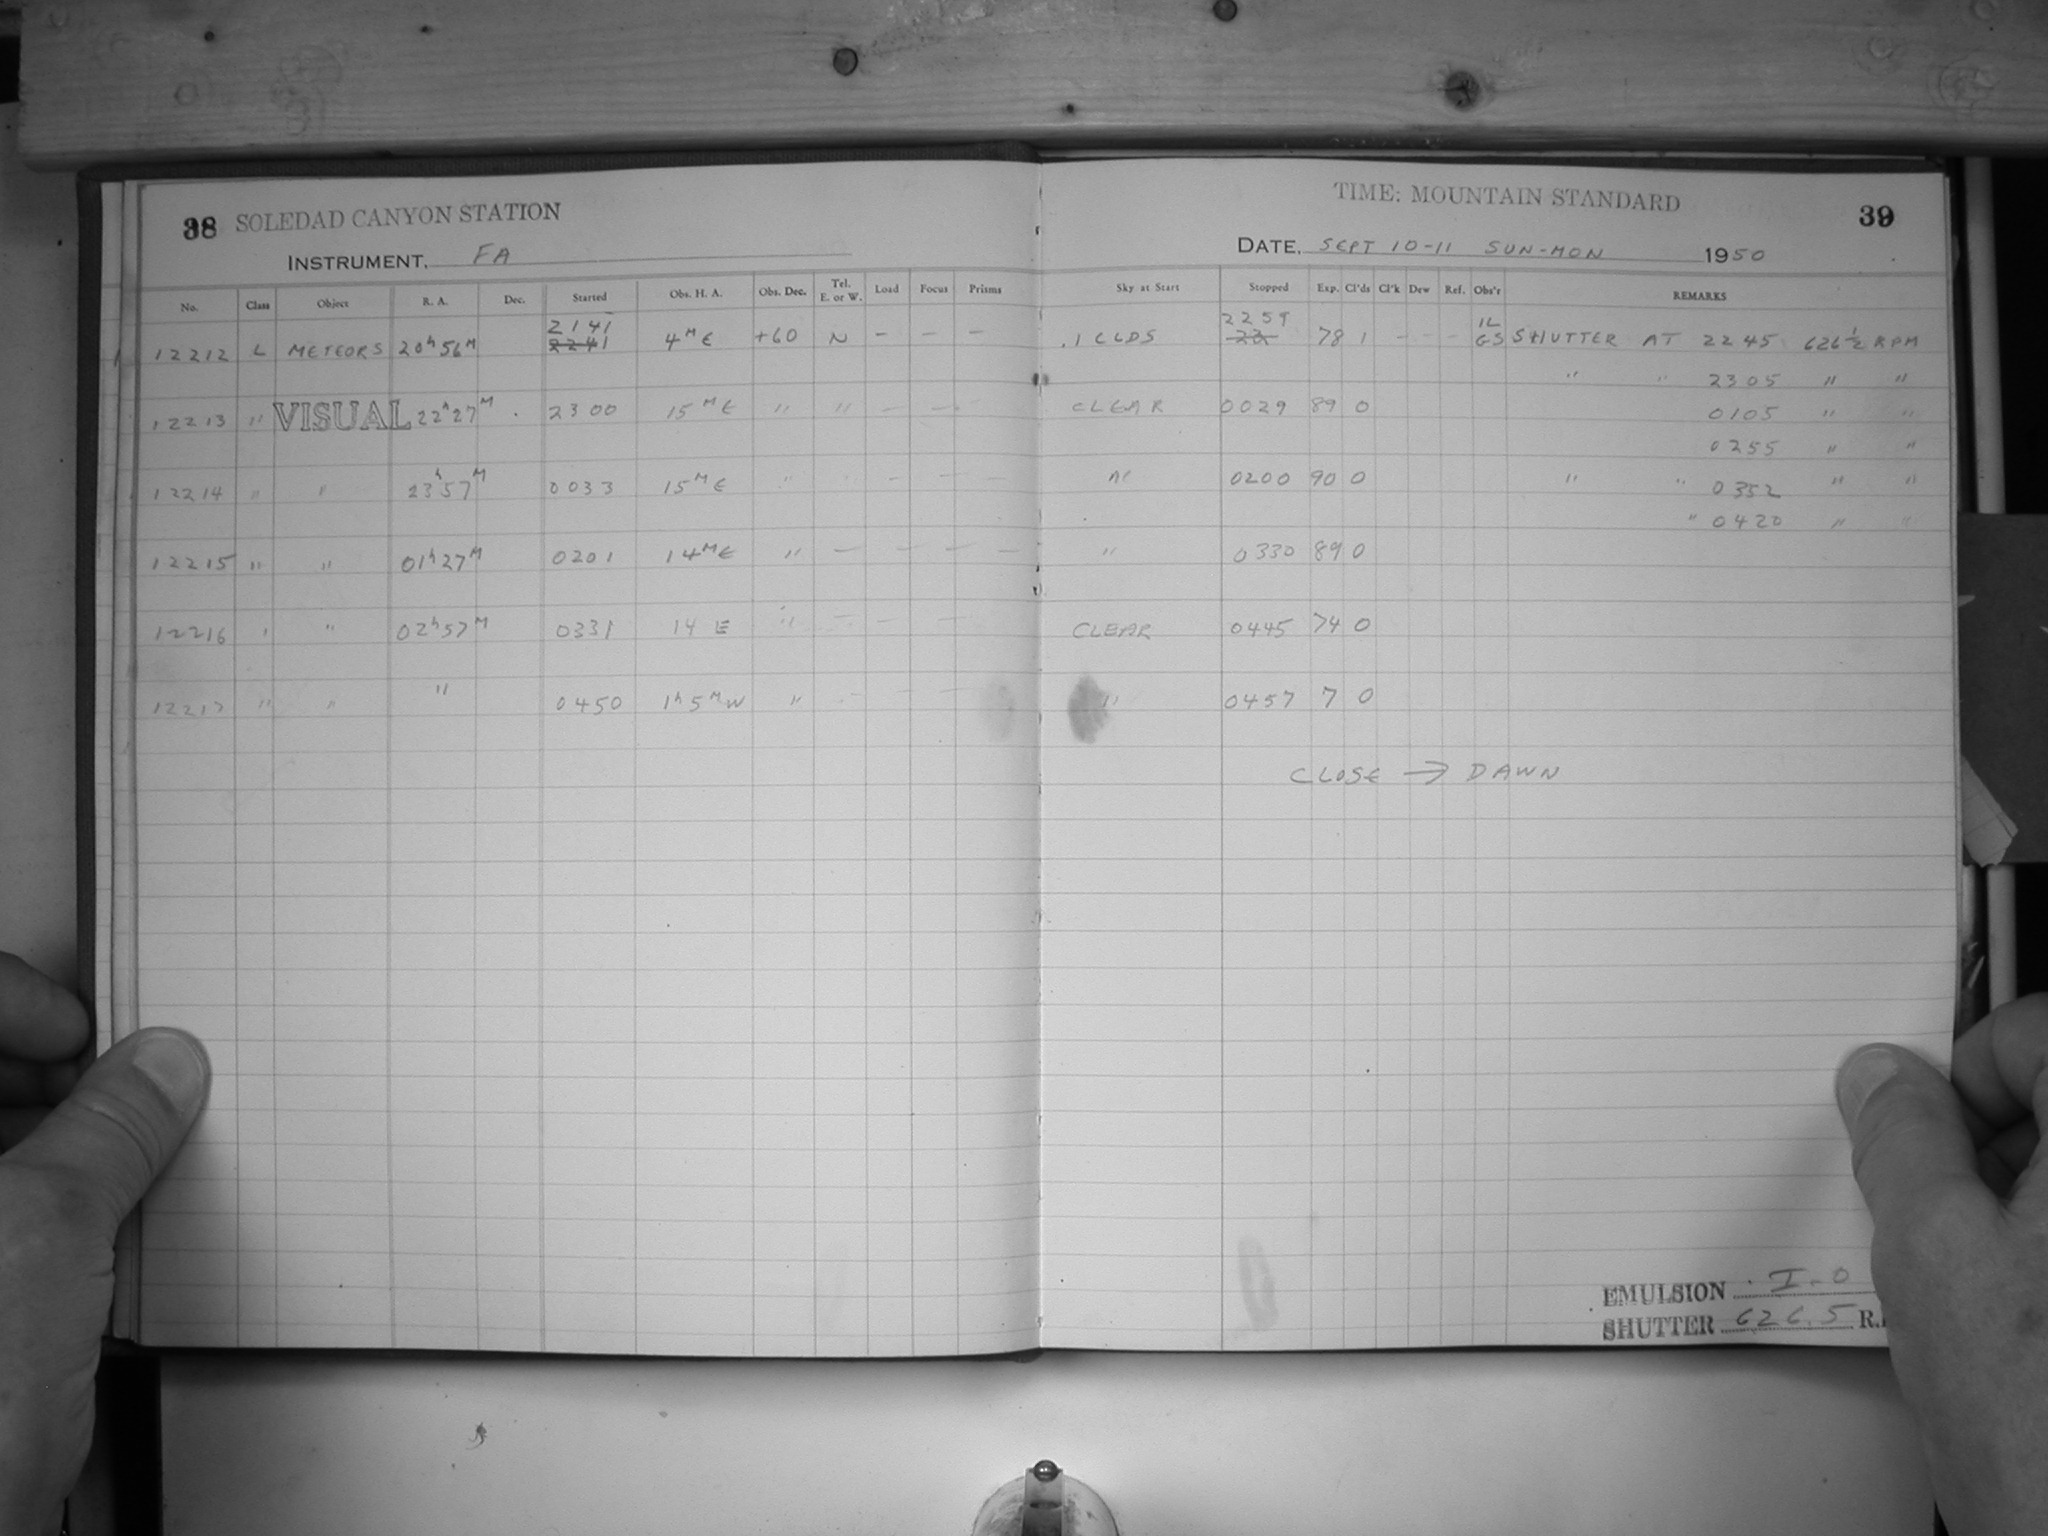 38 SOLEDAD CANYON STATION
INSTRUMENT, FA
No. Class Object R. A. Dec. Started Obs. H. A. Obs. Dec. Tel. E. or W. Load Focus Prisms
2141
12212 L METEORS 20h 56M 2241 4M E +60 N — — —
12213 " VISUAL 22h 27M . 2300 15 M E " " — —
12214 " " 23h 57M 0033 15 M E " " — —
12215 " " 01h 27M 0201 14 M E " — — — —
12216 " " 02h 57M 0331 14 E " — — —
12217 " " " 0450 1h 5 M W " — — —
TIME: MOUNTAIN STANDARD
39
DATE, SEPT 10-11 SUN-MON 1950
Sky at Start Stopped Exp. Cl'ds Cl'k Dew Ref. Obs'r REMARKS
2259 IL
.1 CLDS 22 78 1 - - - GS SHUTTER AT 2245 626 1/2 RPM
" " 2305 " "
CLEAR 0029 89 0 0105 " "
0255 " "
0200 90 0 " " 0352 " "
" 0420 " "
" 0330 89 0
CLEAR 0445 74 0
" 0457 7 0
CLOSE → DAWN
EMULSION I-0
SHUTTER 626.5 R.